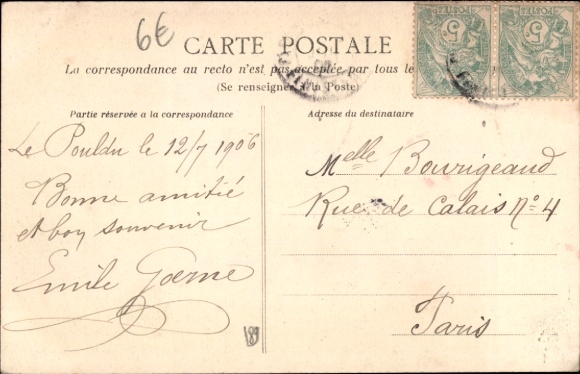 6€
CARTE POSTALE
La correspondance au recto n'est pas acceptée par tous le
(Se renseigner à la Poste)
Partie réservée a la correspondance
Adresse du destinataire
Le Pouldu le 12/7 1906
Bonne amitié
et bon souvenir
Emile
Melle Bourigeaud
Rue de Calais No 4
Paris
POSTES
5c
POSTES
5c